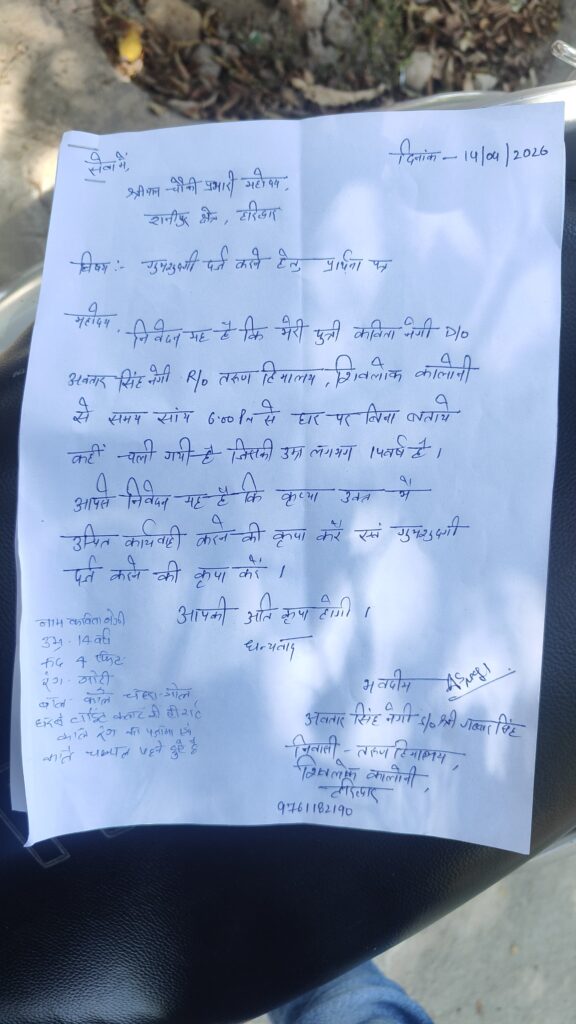 सेवा में,
दिनांक - 14/04/2026
श्रीमान चौकी प्रभारी महोदय,
रानीपुर क्षेत्र, हरिद्वार
विषय :- गुमशुदगी दर्ज करने हेतु प्रार्थना पत्र
महोदय,
निवेदन यह है कि मेरी पुत्री कविता नेगी D/o
अवतार सिंह नेगी R/o तरुण हिमालय, शिवलोक कालोनी
से समय सांय 6:00 Pm से घर पर बिना बताये
कहीं चली गयी है जिसकी उम्र लगभग 14 वर्ष है।
आपसे निवेदन यह है कि कृप्या उक्त में
उचित कार्यवाही करने की कृपा करें एवं गुमशुदगी
दर्ज करने की कृपा करें।
आपकी अति कृपा होगी।
धन्यवाद
नाम कविता नेगी
उम्र - 14 वर्ष
कद 4 फिट
रंग - गोरी
बाल - काले चेहरा - गोल
लाईट कलर की टी शर्ट
काले रंग का पजामा एवं
काले चप्पल पहने हुए है
भवदीय
अवतार सिंह नेगी S/o श्री सिंह
निवासी - तरुण हिमालय,
शिवलोक कालोनी,
हरिद्वार
9761182190